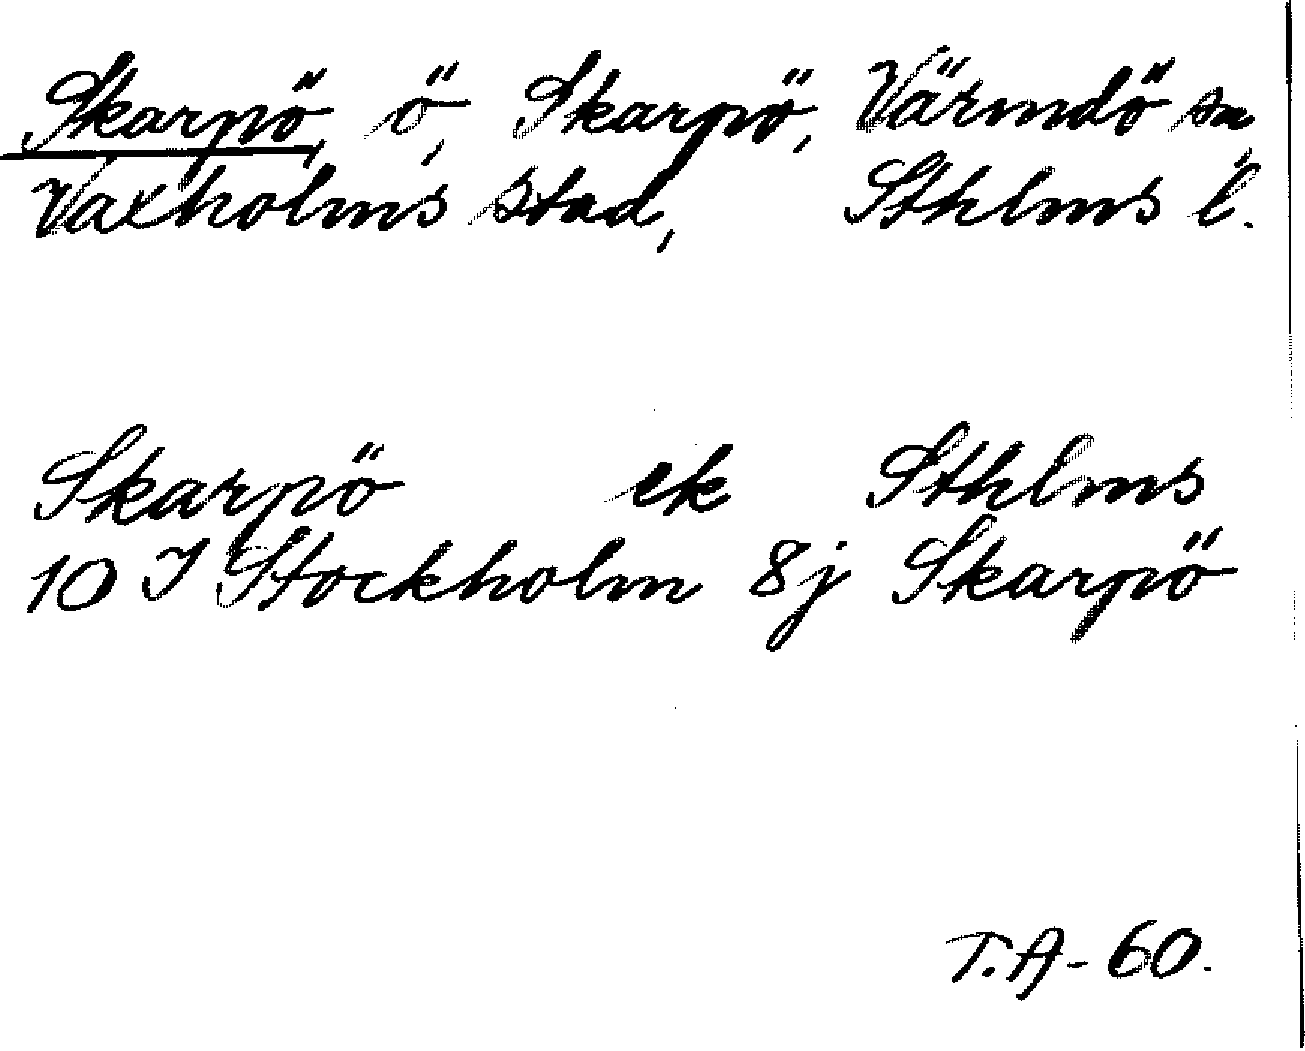 Skarpö, ö, Skarpö, Värmdö sn,
Vaxholms stad, Sthlms l.
Skarpö ek Sthlms
10 I Stockholm 8j Skarpö
T.A-60.